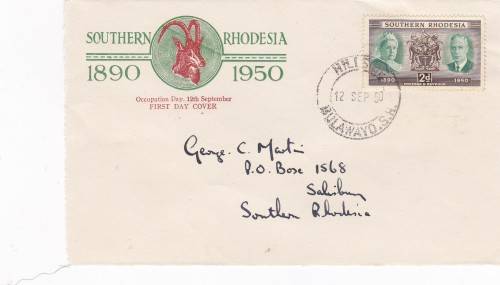 SOUTHERN RHODESIA
1890 1950
Occupation Day, 12th September
FIRST DAY COVER
SOUTHERN RHODESIA
1890 2d 1950
POSTAGE & REVENUE
12 SEP 50
BULAWAYO. S.R.
George C. Martin
P.O. Box 1568
Salisbury
Southern Rhodesia